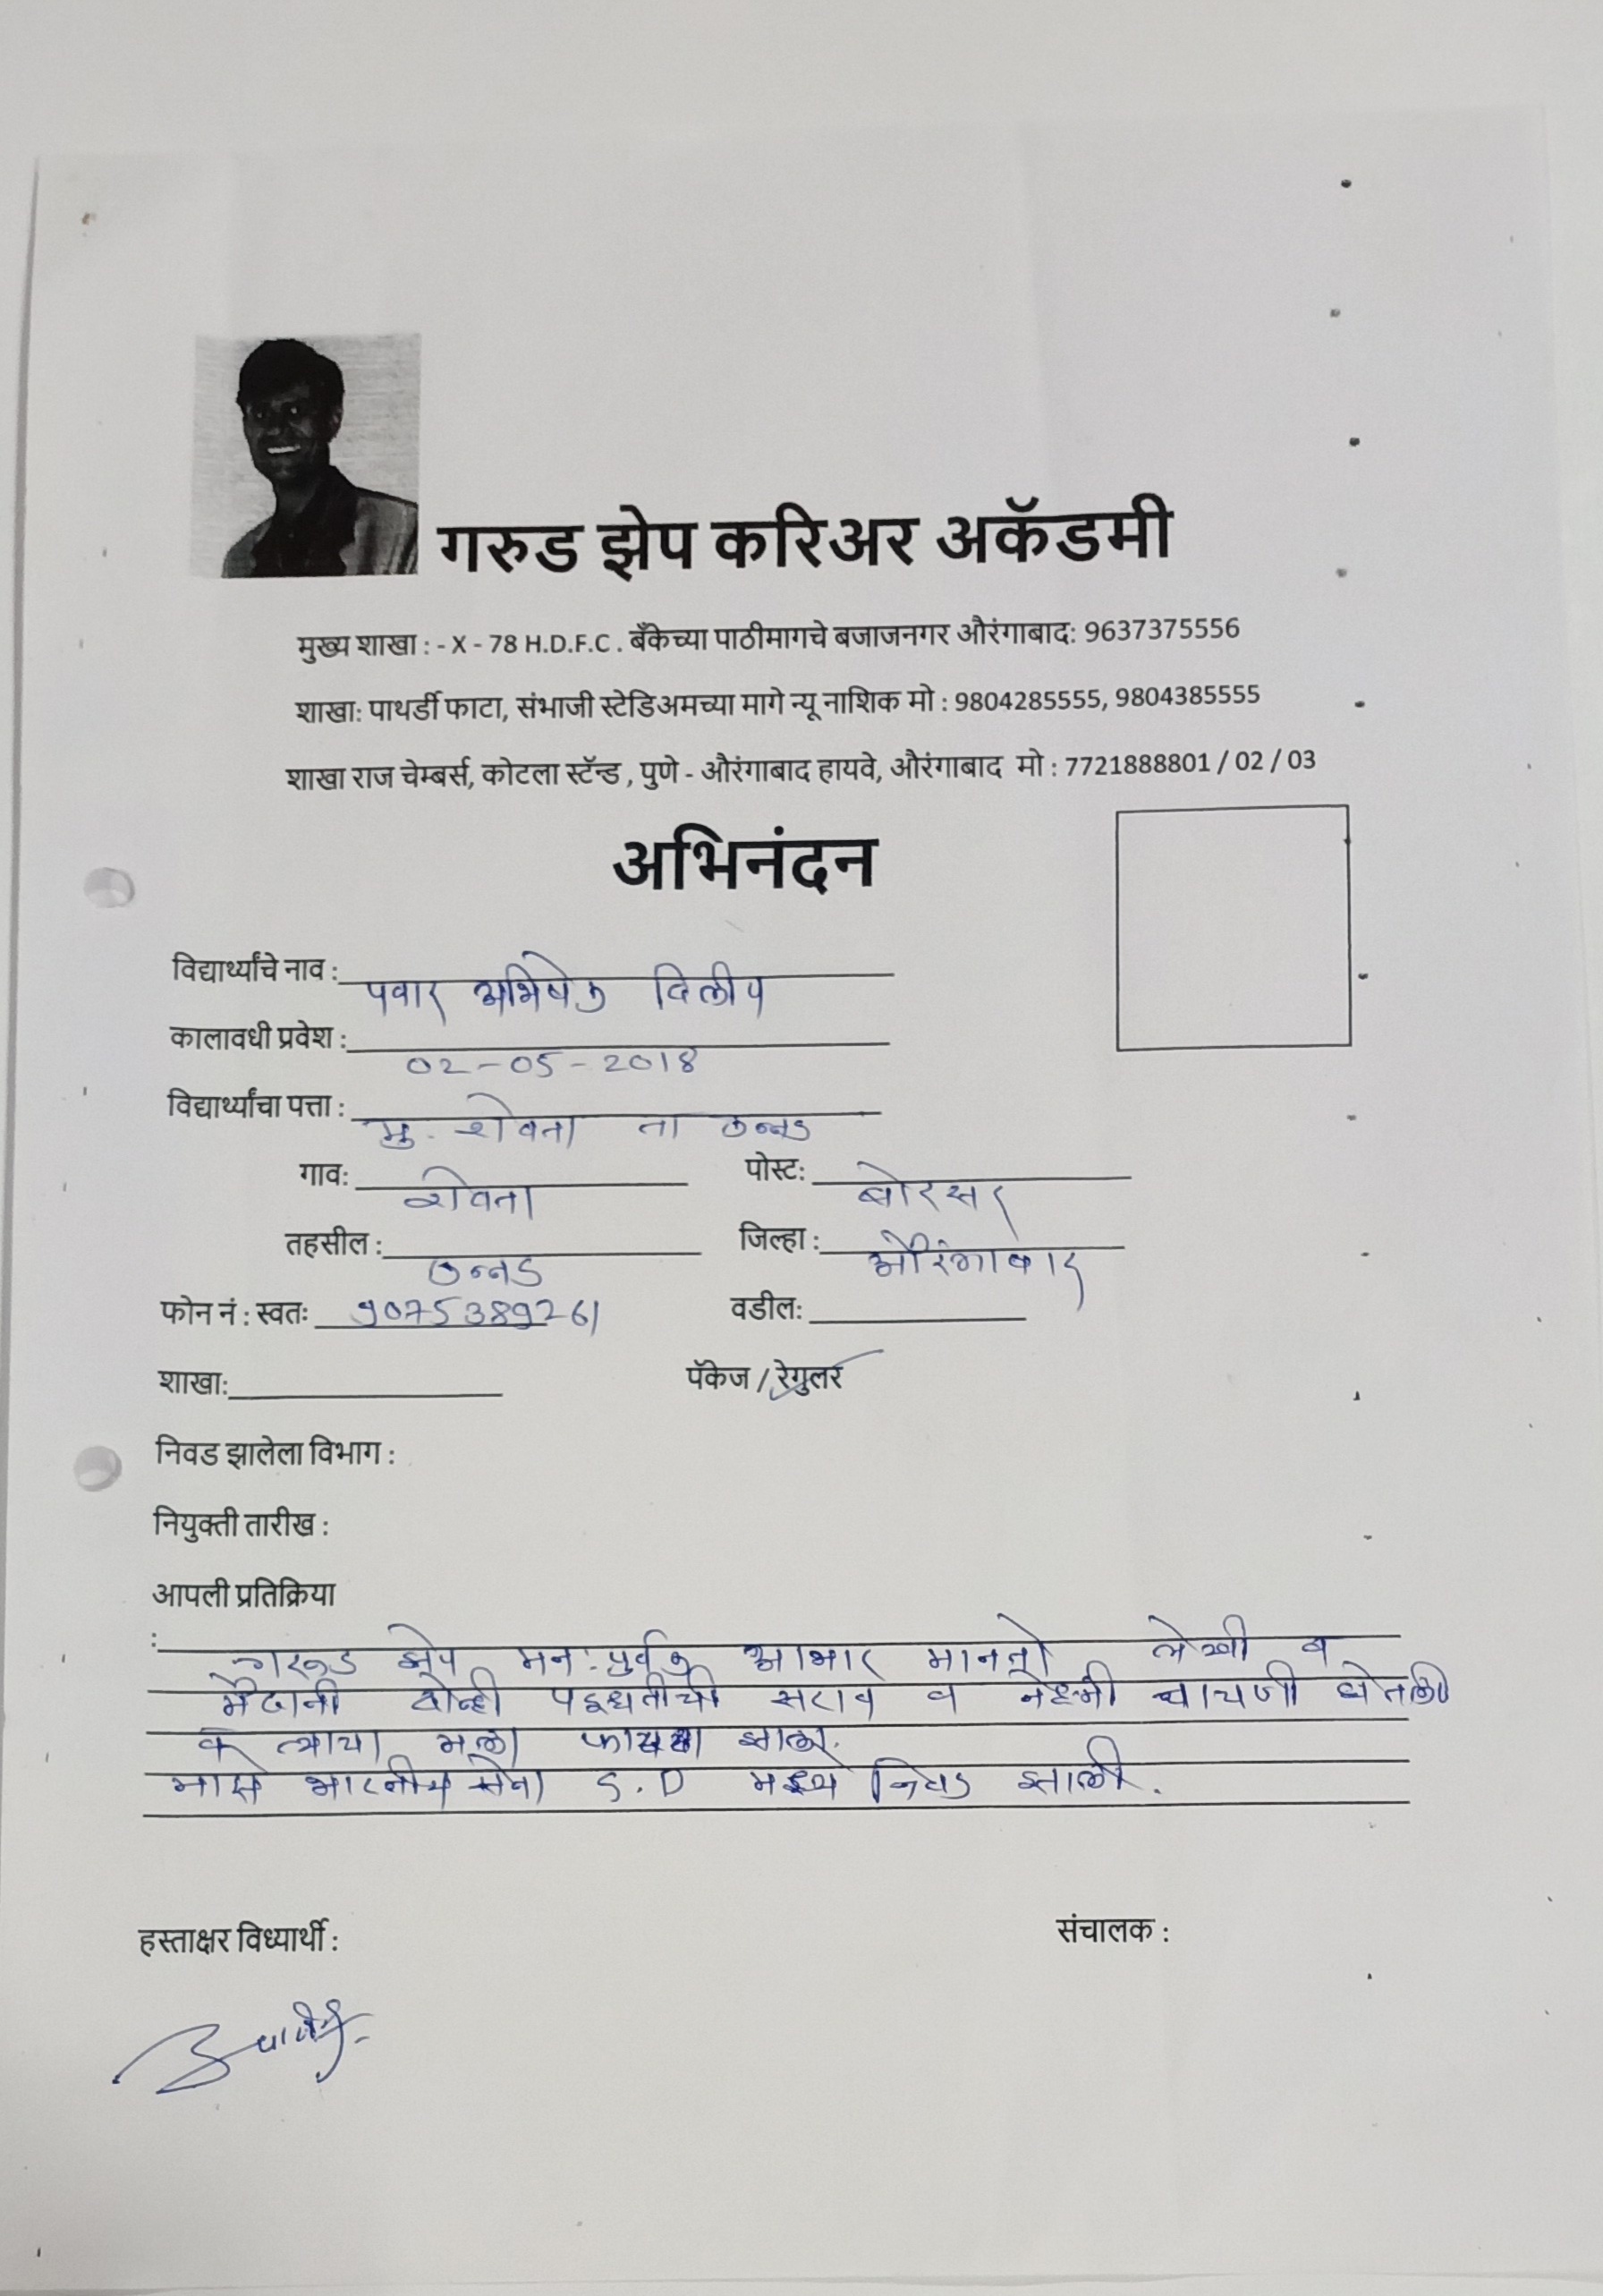 गरुड झेप करिअर अकॅडमी
मुख्य शाखा : - X - 78 H.D.F.C . बँकेच्या पाठीमागचे बजाजनगर औरंगाबाद: 9637375556
शाखा: पाथर्डी फाटा, संभाजी स्टेडिअमच्या मागे न्यू नाशिक मो : 9804285555, 9804385555
शाखा राज चेम्बर्स, कोटला स्टॅन्ड , पुणे - औरंगाबाद हायवे, औरंगाबाद मो : 7721888801 / 02 / 03
अभिनंदन
विद्यार्थ्यांचे नाव : पवार अभिषेक दिलीप
कालावधी प्रवेश : 02-05-2018
विद्यार्थ्यांचा पत्ता : मु. शेवता ता कन्नड
गाव: शेवता पोस्ट: बोरसर
तहसील : कन्नड जिल्हा : औरंगाबाद
फोन नं : स्वतः 9075389261 वडील:
शाखा: पॅकेज / रेगुलर
निवड झालेला विभाग :
नियुक्ती तारीख :
आपली प्रतिक्रिया
: गरूड झेप मनःपुर्वक आभार मानतो लेखी व
मैदानी दोन्ही पद्धतीची सराव व नेहमी चाचणी घेतली
व त्याचा मला फायदा झाला.
माझे भारतीय सेना G.D मध्ये निवड झाली.
हस्ताक्षर विध्यार्थी : संचालक :